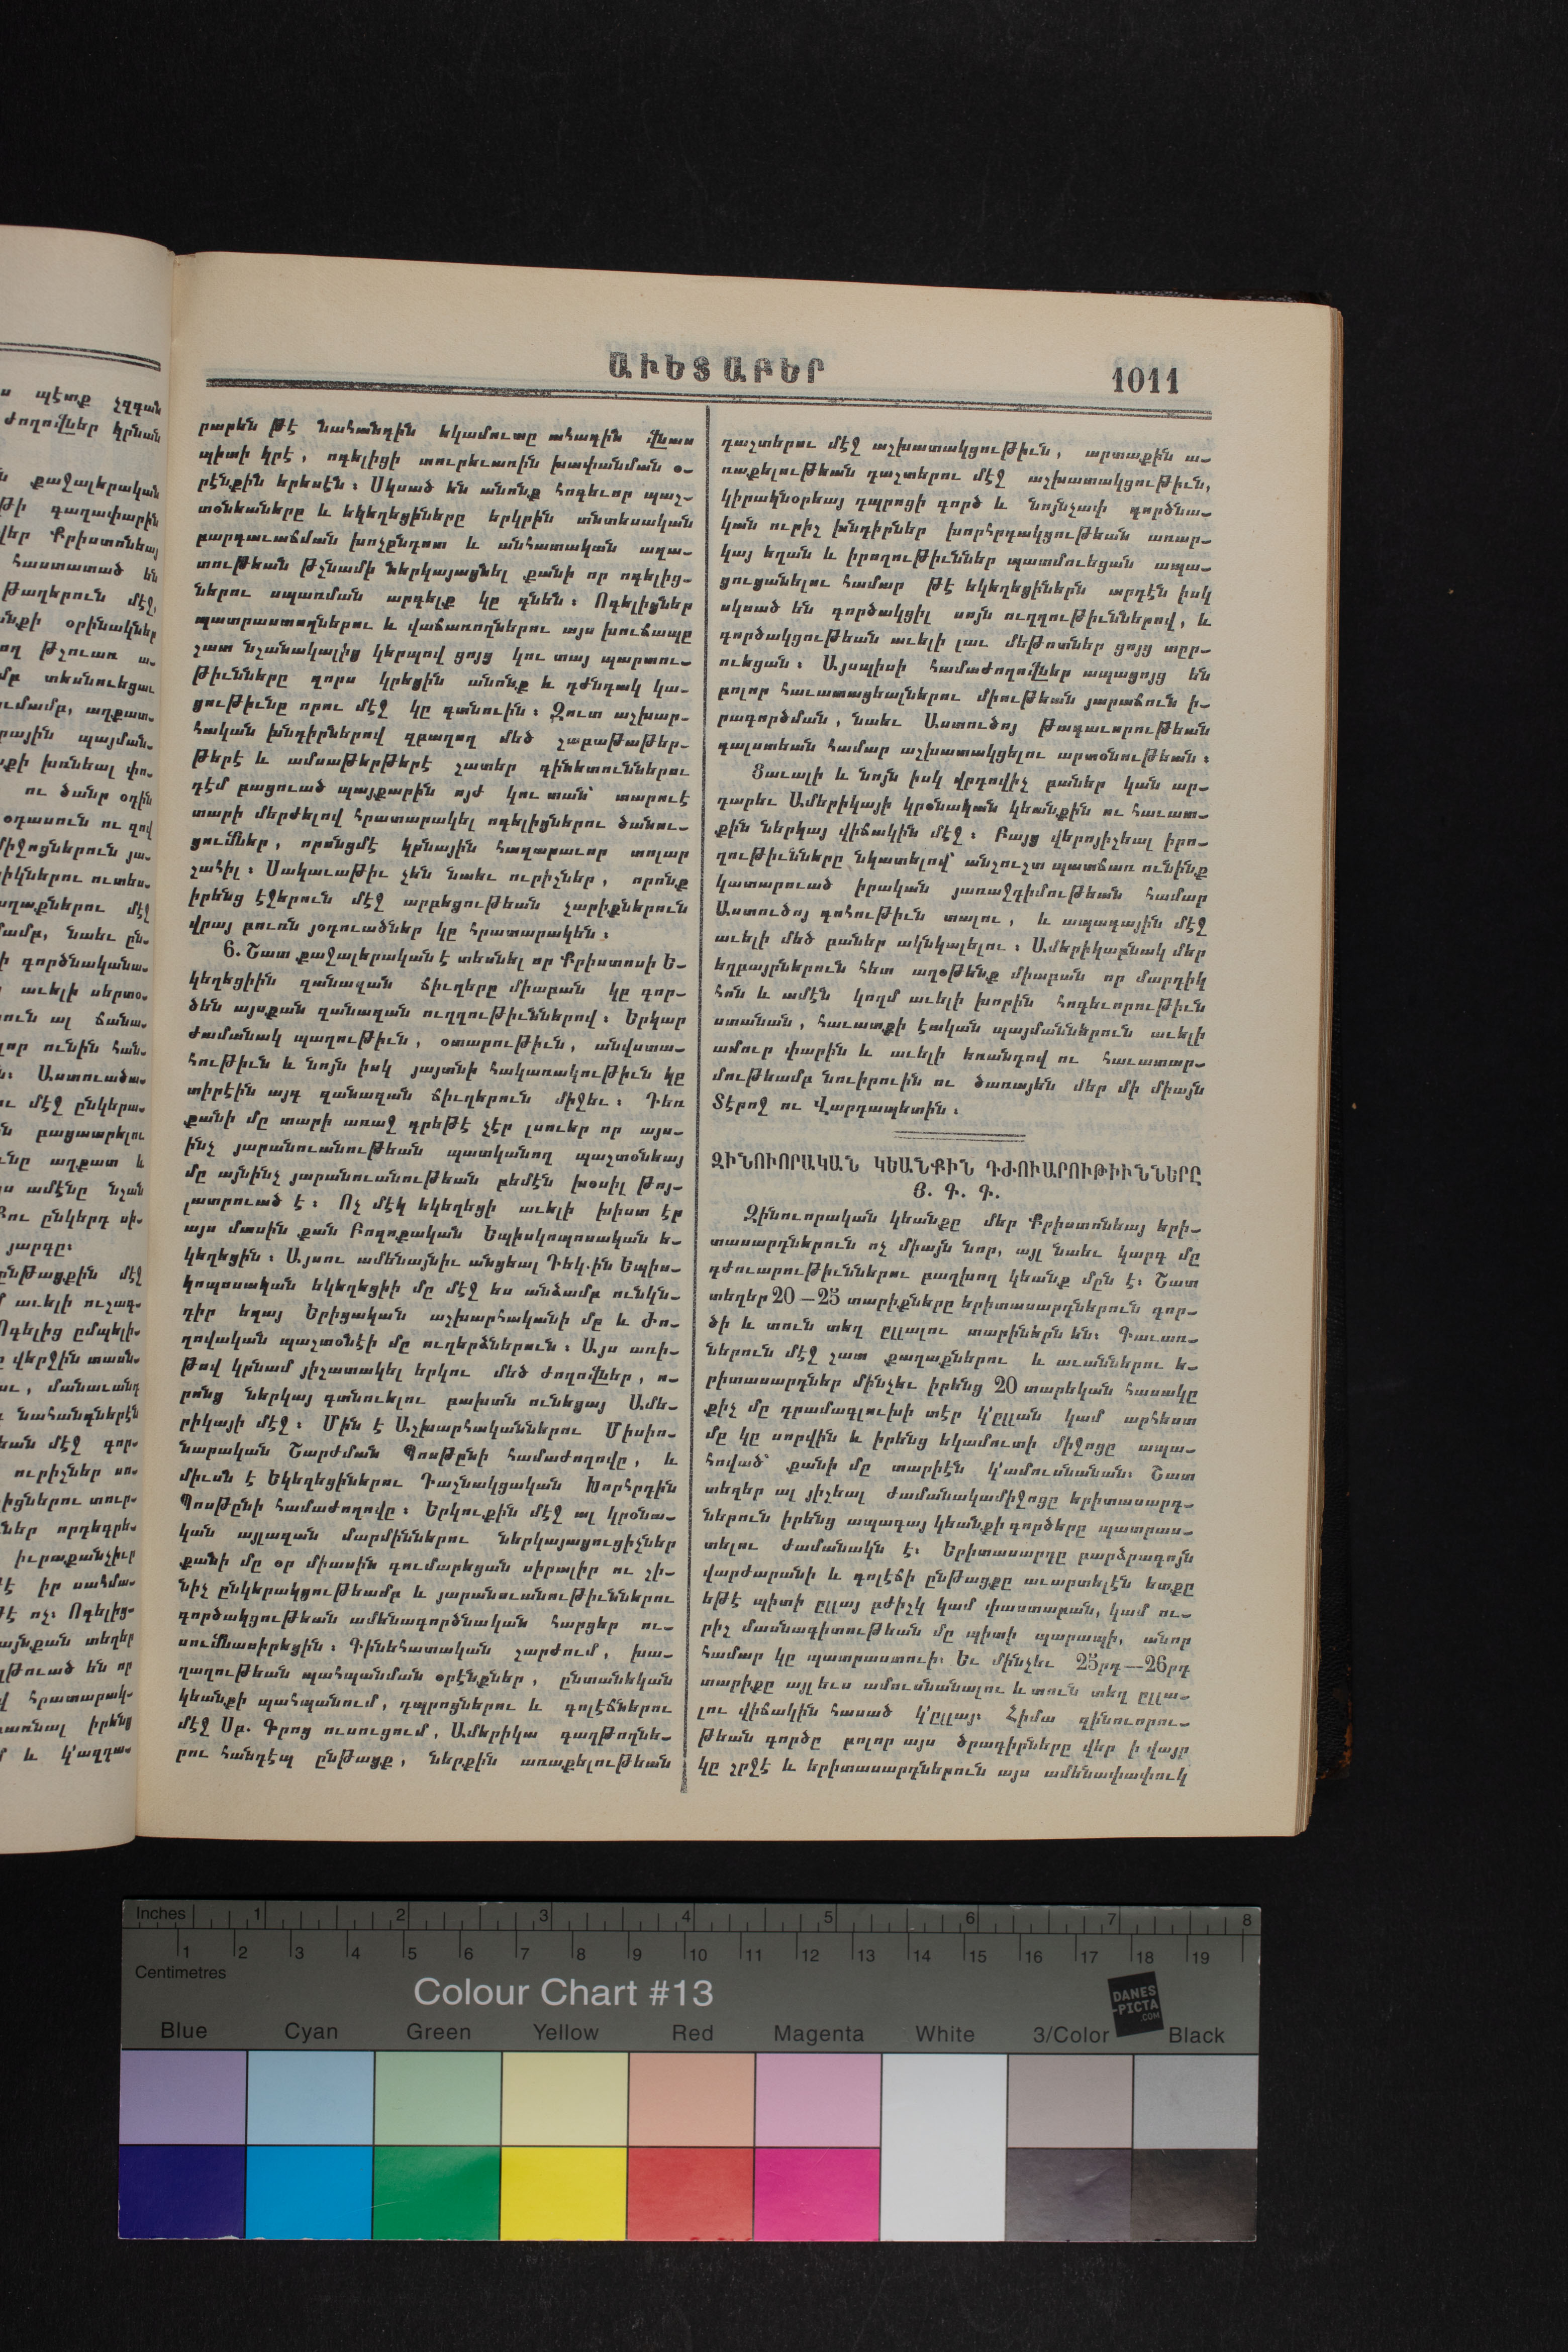 ԱՒԵՏԱԲԵՐ
1011
րարեն թէ նահանգին եկամուտը ահագին վնաս
պիտի կրէ, ոգելիցի տուրեւառին խափանման օ-
րէնքին երեսէն։ Սկսած են անոնք հոգեւոր պաշ-
տօնեաները և եկեղեցիները երկրին տնտեսական
բարգաւաճման խոչընդոտ և անհատական ազա-
տութեան թշնամի ներկայացնել քանի որ ոգելից-
ներու սպառման արգելք կը դնեն։ Ոգելիցներ
պատրաստողներու և վաճառողներու այս խուճապը
շատ նշանակալից կերպով ցոյց կու տայ պարտու-
թիւնները զորս կրեցին անոնք և դժնդակ կա-
ցութիւնը որու մէջ կը գտնուին։ Զուտ աշխար-
հական խնդիրներով զբաղող մեծ շաբաթաթեր-
թերէ և ամսաթերթերէ շատեր գինետուններու
դէմ բացուած պայքարին ոյժ կու տան՝ տարուէ
տարի մերժելով հրատարակել ոգելիցներու ծանու-
ցումներ, որոնցմէ կրնային հազարաւոր տոլար
շահիլ։ Սակաւաթիւ չեն նաեւ ուրիշներ, որոնք
իրենց էջերուն մէջ արբեցութեան չարիքներուն
վրայ բուռն յօդուածներ կը հրատարակեն։
6. Շատ քաջալերական է տեսնել որ Քրիստոսի Ե-
կեղեցիին զանազան ճիւղերը միաբան կը գոր-
ծեն այսքան զանազան ուղղութիւններով։ Երկար
ժամանակ պաղութիւն, օտարութիւն, անվստա-
հութիւն և նոյն իսկ յայտնի հակառակութիւն կը
տիրէին այդ զանազան ճիւղերուն միջեւ։ Դեռ
քանի մը տարի առաջ գրեթէ չէր լսուեր որ այս-
ինչ յարանուանութեան պատկանող պաշտօնեայ
մը այնինչ յարանուանութեան բեմէն խօսիլ թոյ-
լատրուած է։ Ոչ մէկ եկեղեցի աւելի խիստ էր
այս մասին քան Բողոքական Եպիսկոպոսական Ե-
կեղեցին։ Այսու ամենայնիւ անցեալ Դեկ.ին Եպիս-
կոպոսական եկեղեցիի մը մէջ ես անձամբ ունկն-
դիր եղայ Երիցական աշխարհականի մը և Ժո-
ղովական պաշտօնէի մը ուղերձներուն։ Այս առի-
թով կրնամ յիշատակել երկու մեծ ժողովներ, ո-
րոնց ներկայ գտնուելու բախտն ունեցայ Ամե-
րիկայի մէջ։ Մին է Աշխարհականներու Միսիո-
նարական Շարժման Պոսթընի համաժողովը, և
միւսն է Եկեղեցիներու Դաշնակցական Խորհրդին
Պոսթընի համաժողովը։ Երկուքին մէջ ալ կրօնա-
կան այլազան մարմիններու ներկայացուցիչներ
քանի մը օր միասին գումարեցան սիրալիր ու ջի-
նիչ ընկերակցութեամբ և յարանուանութիւններու
գործակցութեան ամենագործնական հարցեր ու-
սումնասիրեցին։ Գինեհատական շարժում, խա-
ղաղութեան պահպանման օրէնքներ, ընտանեկան
կեանքի պահպանում, դպրոցներու և գոլէճներու
մէջ Սբ. Գրոց ուսուցում, Ամերիկա գաղթողնե-
րու հանդէպ ընթացք, ներքին առաքելութեան
դաշտերու մէջ աշխատակցութիւն, արտաքին ա-
ռաքելութեան դաշտերու մէջ աշխատակցութիւն,
կիրակնօրեայ դպրոցի գործ և նոյնչափ գործնա-
կան ուրիշ խնդիրներ խորհրդակցութեան առար-
կայ եղան և իրողութիւններ պատմուեցան ապա-
ցուցանելու համար թէ եկեղեցիներն արդէն իսկ
սկսած են գործակցիլ սոյն ուղղութիւններով, և
գործակցութեան աւելի լաւ մեթոտներ ցոյց տըր-
ուեցան։ Այսպիսի համաժողովներ ապացոյց են
բոլոր հաւատացեալներու միութեան յարաճուն ի-
րագործման, նաեւ Աստուծոյ թագաւորութեան
գալստեան համար աշխատակցելու արտօնութեան։
Ցաւալի և նոյն իսկ վրդովիչ բաներ կան ար-
դարեւ Ամերիկայի կրօնական կեանքին ու հաւատ-
քին ներկայ վիճակին մէջ։ Բայց վերոյիշեալ իրո-
ղութիւնները նկատելով՝ անշուշտ պատճառ ունինք
կատարուած իրական յառաջդիմութեան համար
Աստուծոյ գոհութիւն տալու, և ապագային մէջ
աւելի մեծ բաներ ակնկալելու։ Ամերիկաբնակ մեր
եղբայրներուն հետ աղօթենք միաբան որ մարդիկ
հոն և ամէն կողմ աւելի խորին հոգեւորութիւն
ստանան, հաւատքի էական պայմաններուն աւելի
ամուր փարին և աւելի եռանդով ու հաւատար-
մութեամբ նուիրուին ու ծառայեն մեր մի միայն
Տէրոջ ու Վարդապետին։
ԶԻՆՈՒՈՐԱԿԱՆ ԿԵԱՆՔԻՆ ԴԺՈՒԱՐՈՒԹԻՒՆՆԵՐԸ
Յ. Գ. Գ.
Զինուորական կեանքը մեր Քրիստոնեայ երի-
տասարդներուն ոչ միայն նոր, այլ նաեւ կարգ մը
դժուարութիւններու բաղխող կեանք մըն է։ Շատ
տեղեր 20—25 տարիքները երիտասարդներուն գոր-
ծի և տուն տեղ ըլլալու տարիներն են։ Գաւառ-
ներուն մէջ շատ քաղաքներու և աւաններու ե-
րիտասարդներ մինչեւ իրենց 20 տարեկան հասակը
քիչ մը դրամագլուխի տէր կ՚ըլլան կամ արհեստ
մը կը սորվին և իրենց եկամուտի միջոցը ապա-
հոված՝ քանի մը տարիէն կ՚ամուսնանան։ Շատ
տեղեր ալ յիշեալ ժամանակամիջոցը երիտասարդ-
ներուն իրենց ապագայ կեանքի գործերը պատրաս-
տելու ժամանակն է։ Երիտասարդը բարձրագոյն
վարժարանի և գոլէճի ընթացքը աւարտելէն ետքը
եթէ պիտի ըլլայ բժիշկ կամ փաստաբան, կամ ու-
րիշ մասնագիտութեան մը պիտի պարապի, անոր
համար կը պատրաստուի։ Եւ մինչեւ 25րդ—26րդ
տարիքը այլ եւս ամուսնանալու և տուն տեղ ըլլա-
լու վիճակին հասած կ՚ըլլայ։ Հիմա զինուորու-
թեան գործը բոլոր այս ծրագիրները վեր ի վայր
կը շրջէ և երիտասարդներուն այս ամենափափուկ
Inches 1 2 3 4 5 6 7 8
1 2 3 4 5 6 7 8 9 10 11 12 13 14 15 16 17 18 19
Centimetres
Colour Chart #13
DANES
-PICTA
.COM
Blue Cyan Green Yellow Red Magenta White 3/Color Black